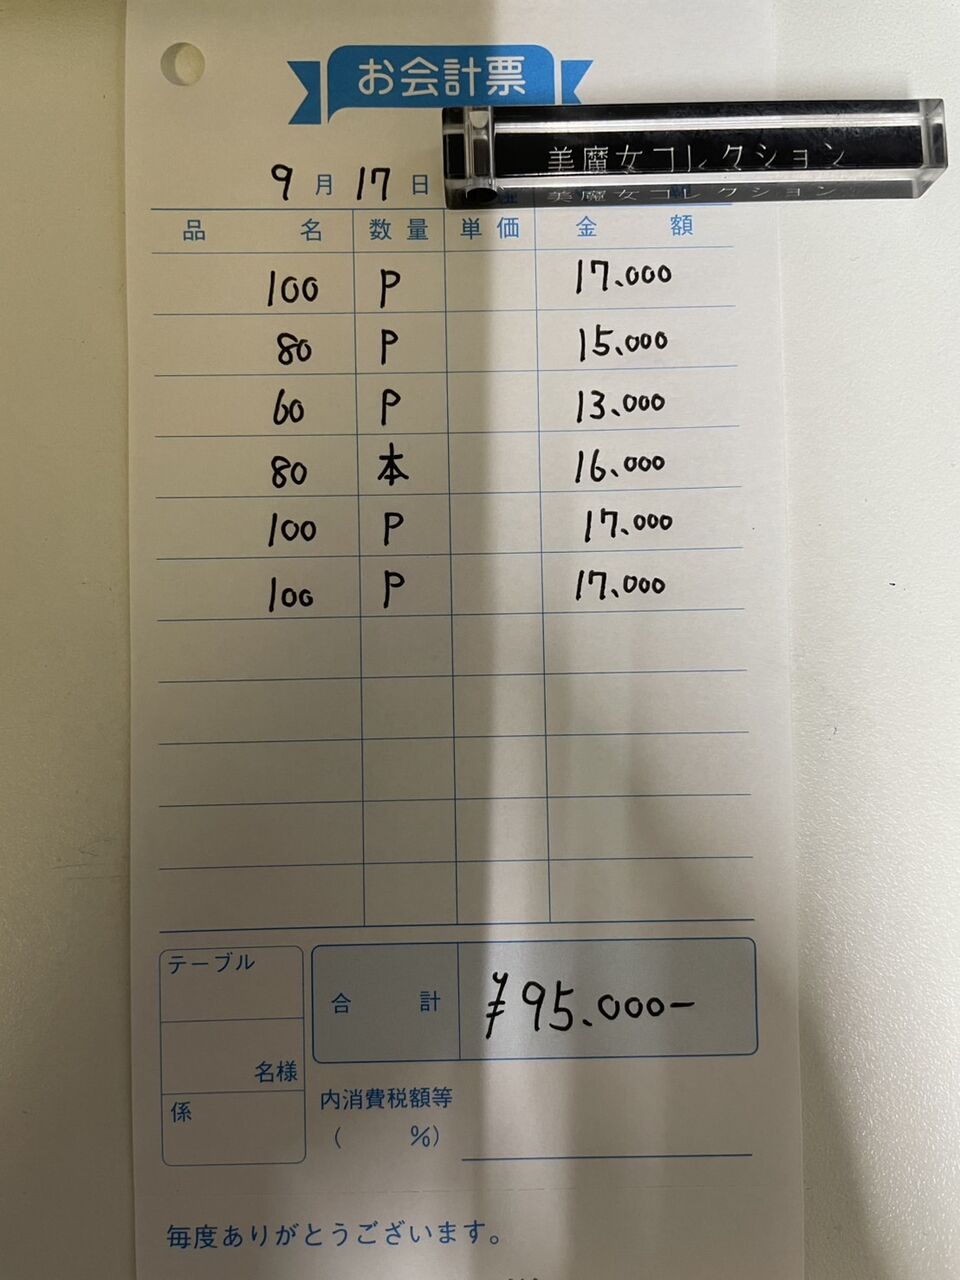 お会計票
美魔女コレクション
9月17日
品名 数量 単価 金額
100 P 17.000
80 P 15.000
60 P 13.000
80 本 16.000
100 P 17.000
100 P 17.000
テーブル
合計 ¥95.000-
名様
係
内消費税額等
( %)
毎度ありがとうございます。